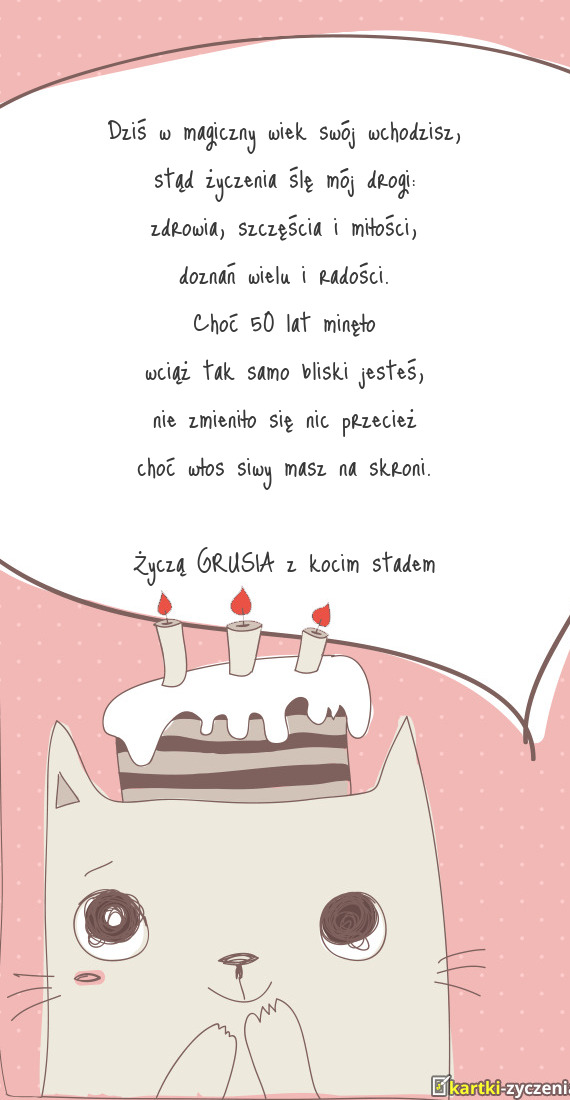 Dziś w magiczny wiek swój wchodzisz,
stąd życzenia ślę mój drogi:
zdrowia, szczęścia i miłości,
doznań wielu i radości.
Choć 50 lat minęło
wciąż tak samo bliski jesteś,
nie zmieniło się nic przecież
choć włos siwy masz na skroni.
Życzą GRUSIA z kocim stadem
kartki-zyczenia